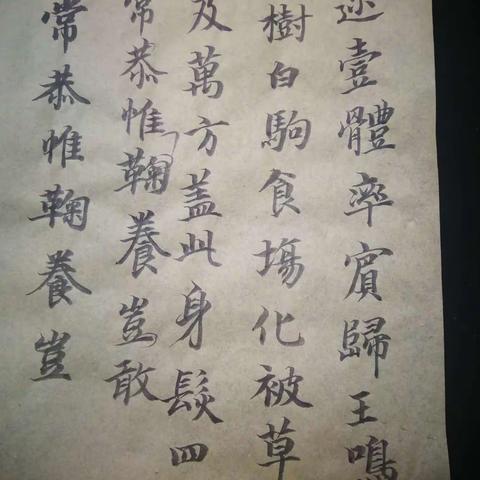 迩壹體率賓歸王鳴
樹白駒食場化被草
及萬方蓋此身髮四
常恭惟鞠養豈敢
常恭惟鞠養豈